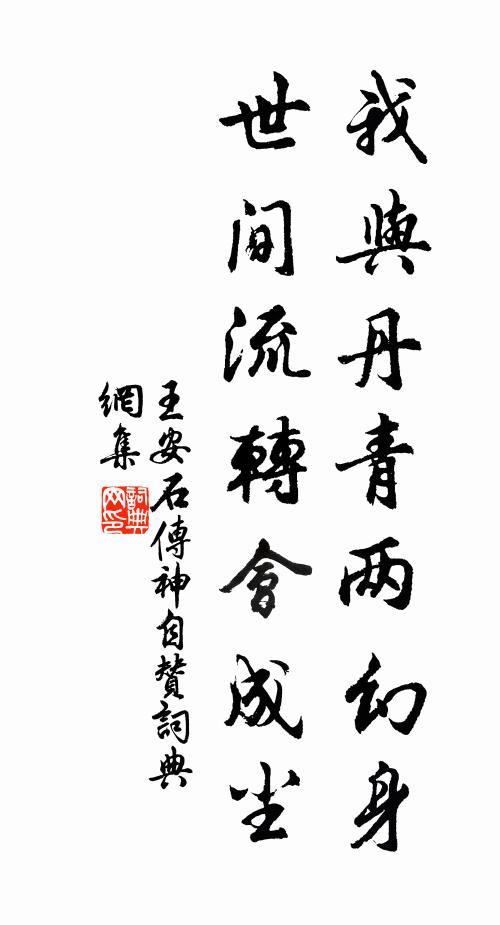 我與丹青两幻身
世間流轉會成尘
王安石傳神自贊詞典
網集
詞典
网印